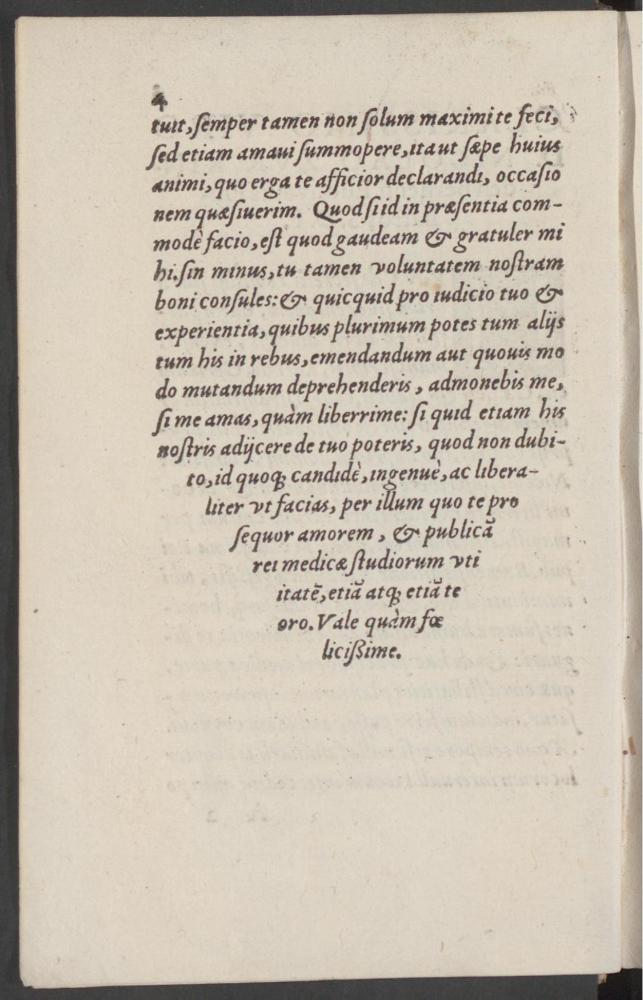 4
tuit, ſemper tamen non ſolum maximi te feci,
ſed etiam amaui ſummopere, ita ut ſæpe huius
animi, quo erga te afficior declarandi, occaſio
nem quæſiuerim. Quod ſi id in præſentia com-
modè facio, eſt quod gaudeam & gratuler mi
hi. ſin minus, tu tamen voluntatem noſtram
boni conſules: & quicquid pro iudicio tuo &
experientia, quibus plurimum potes tum alijs
tum his in rebus, emendandum aut quouis mo
do mutandum deprehenderis, admonebis me,
ſi me amas, quàm liberrime: ſi quid etiam his
noſtris adijcere de tuo poteris, quod non dubi-
to, id quoq; candidè, ingenuè, ac libera-
liter vt facias, per illum quo te pro
ſequor amorem, & publicā
rei medicæ ſtudiorum vti
itatē, etiā atq; etiā te
oro. Vale quàm fœ
liciſſime.